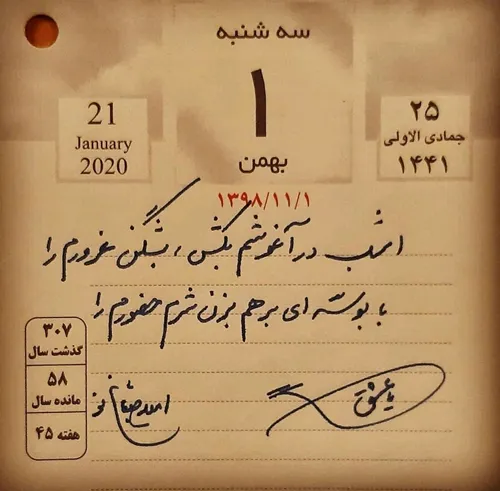 سه شنبه
۱
بهمن
21
January
2020
۲۵
جمادی الاولی
۱۴۴۱
۱۳۹۸/۱۱/۱
امشب در آغوشم بکش، بشکن غرورم را
با بوسه ای برهم بزن شرم حضورم را
۳۰۷
گذشت سال
۵۸
مانده سال
هفته ۴۵
یا عشق